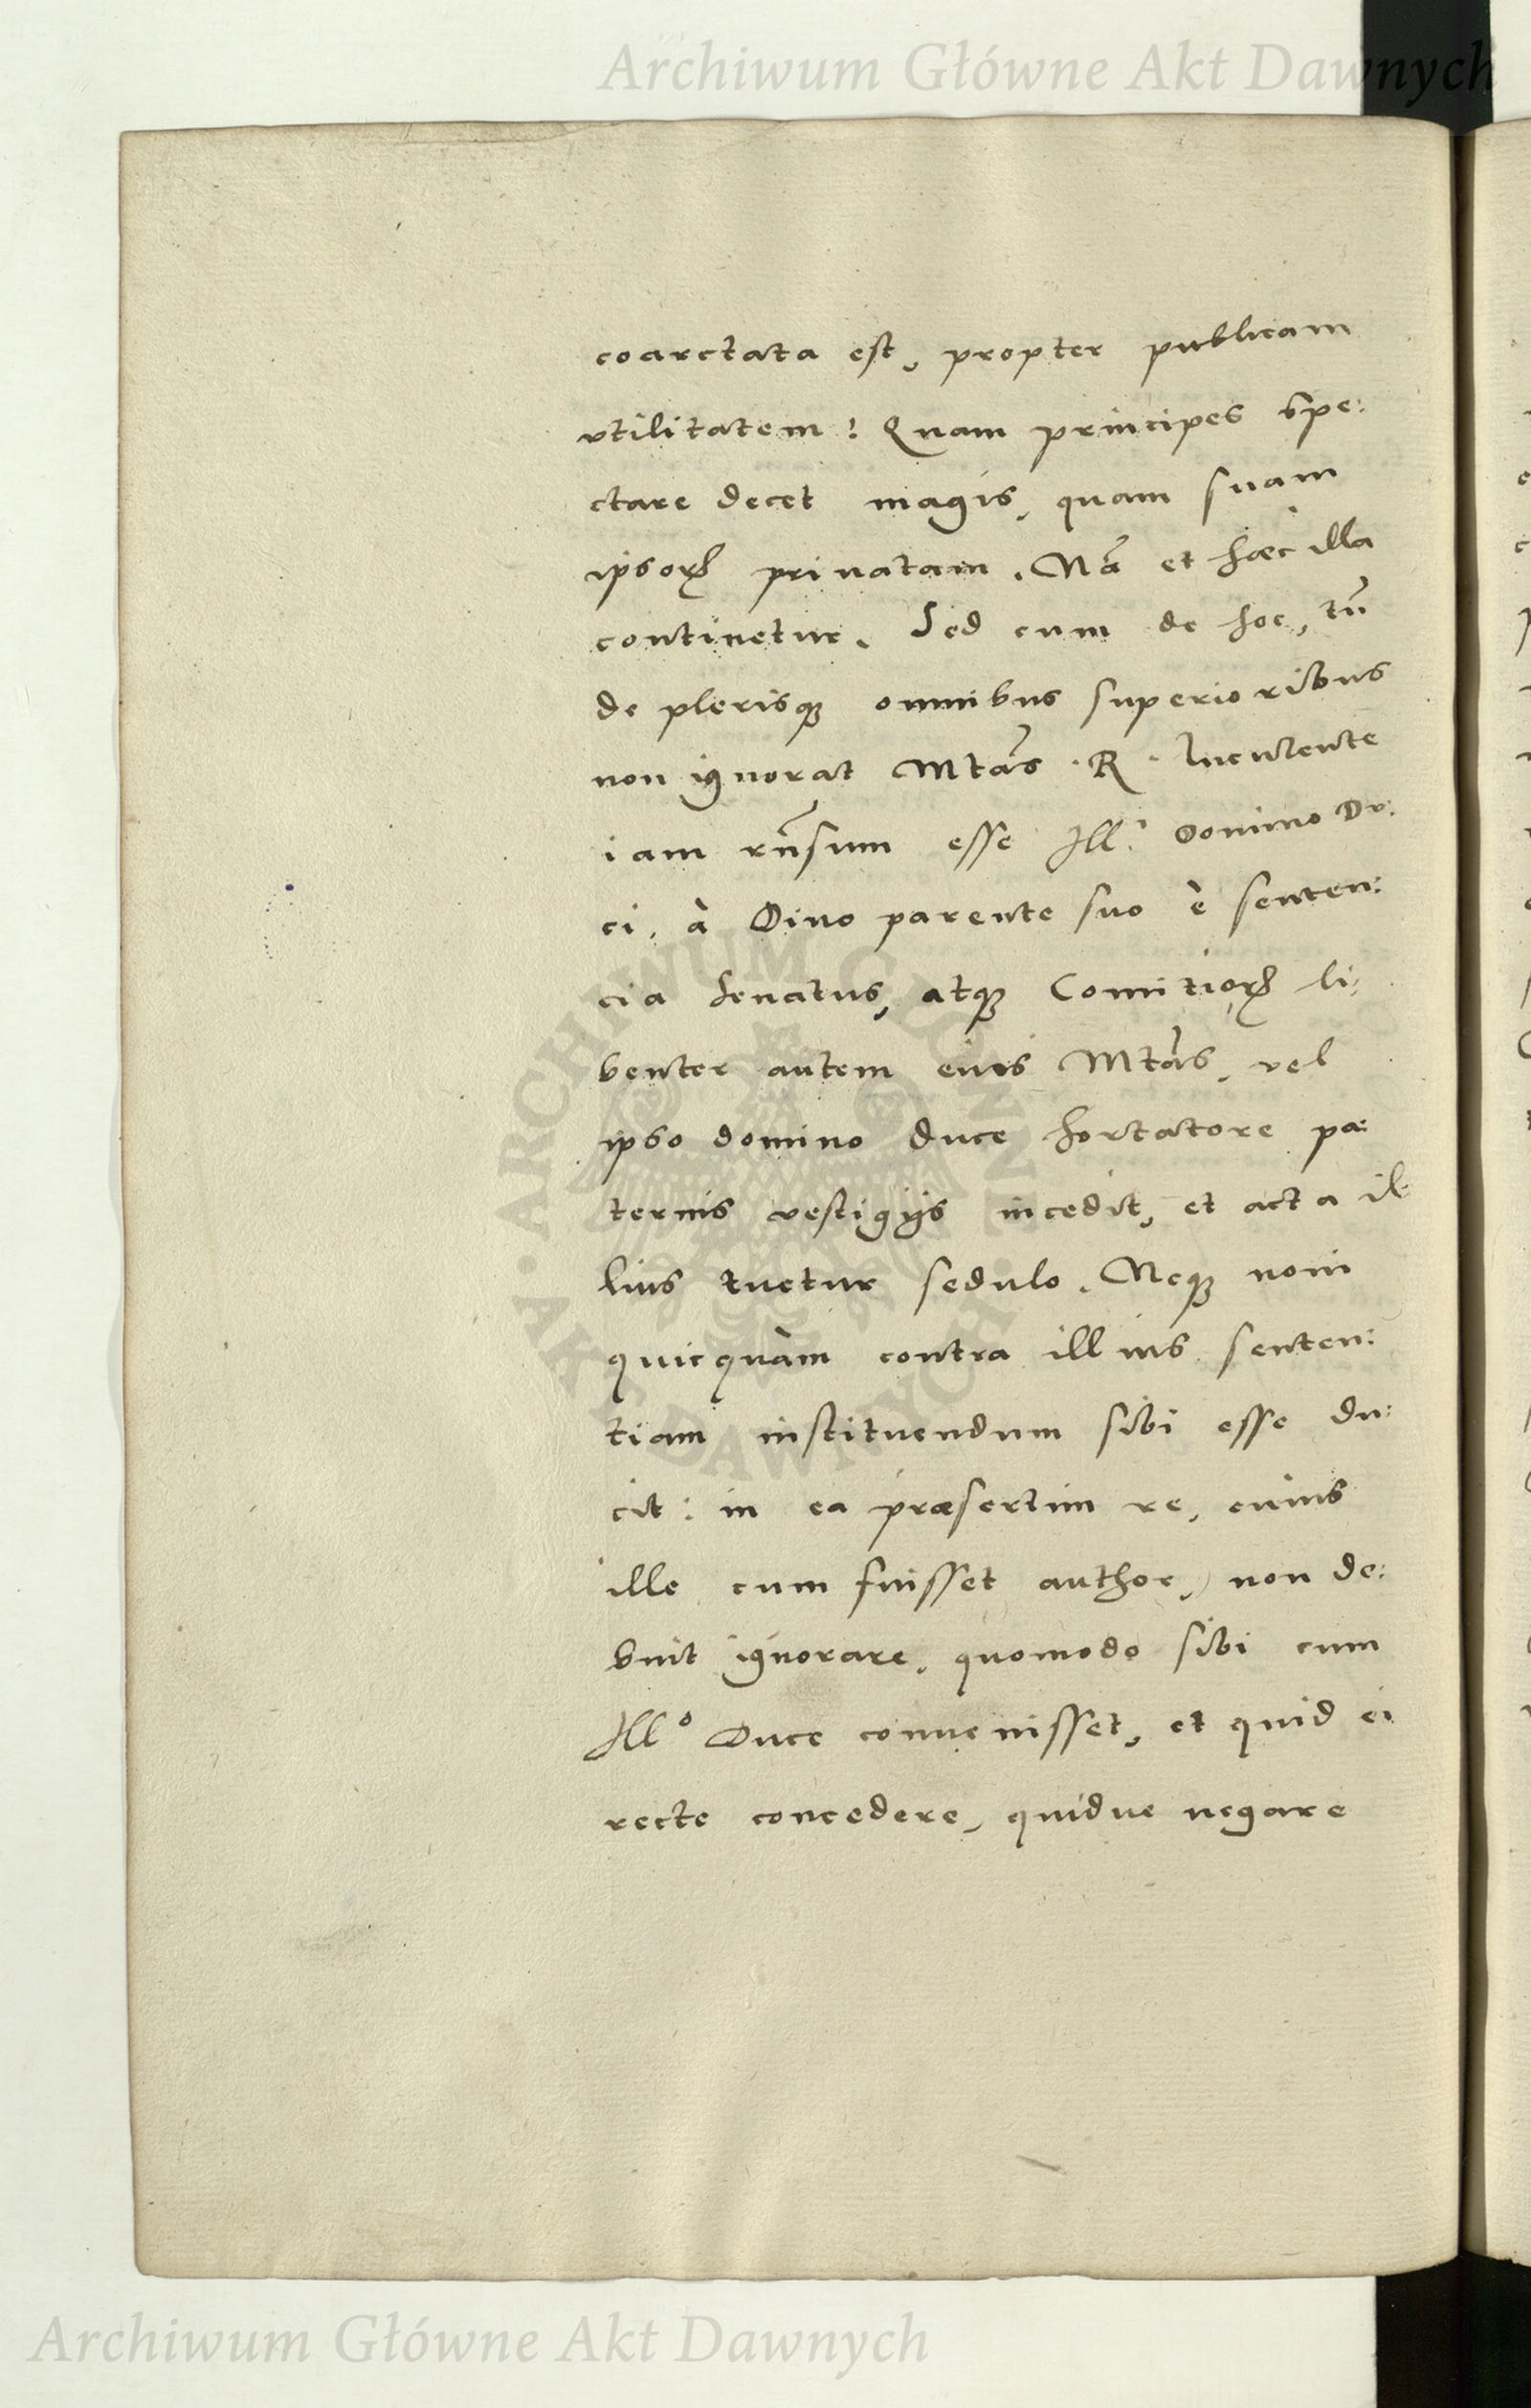 Archiwum Główne Akt Dawnych
coarctata est, propter publicam
vtilitatem: Quam principes spe:
ctare decet magis, quam suam
ipsorꝝ priuatam. Nā et haec illa
continetur. Sed cum de hoc, tū
de plerisqꝫ omnibus superioribus
non ignorat Mtās .R. luculente
iam rn̄sum esse Ill.ͥ Domino Du:
ci, à Diuo parente suo è senten:
cia Senatus, atqꝫ Comitiorꝝ li:
benter autem eius Mtās, vel
ipso domino duce hortatore pa:
ternis vestigijs incedit, et acta il:
lius tuetur sedulo. Neqꝫ noui
quicquàm contra illius senten:
tiam instituendum sibi esse du:
cit: in ea præsertim re, cuius
ille cum fuisset author, non de:
buit ignorare, quomodo sibi cum
Illº Duce conuenisset, et quid ei
recte concedere, quidue negare
ARCHIWUM GŁÓWNE AKT DAWNYCH
Archiwum Główne Akt Dawnych